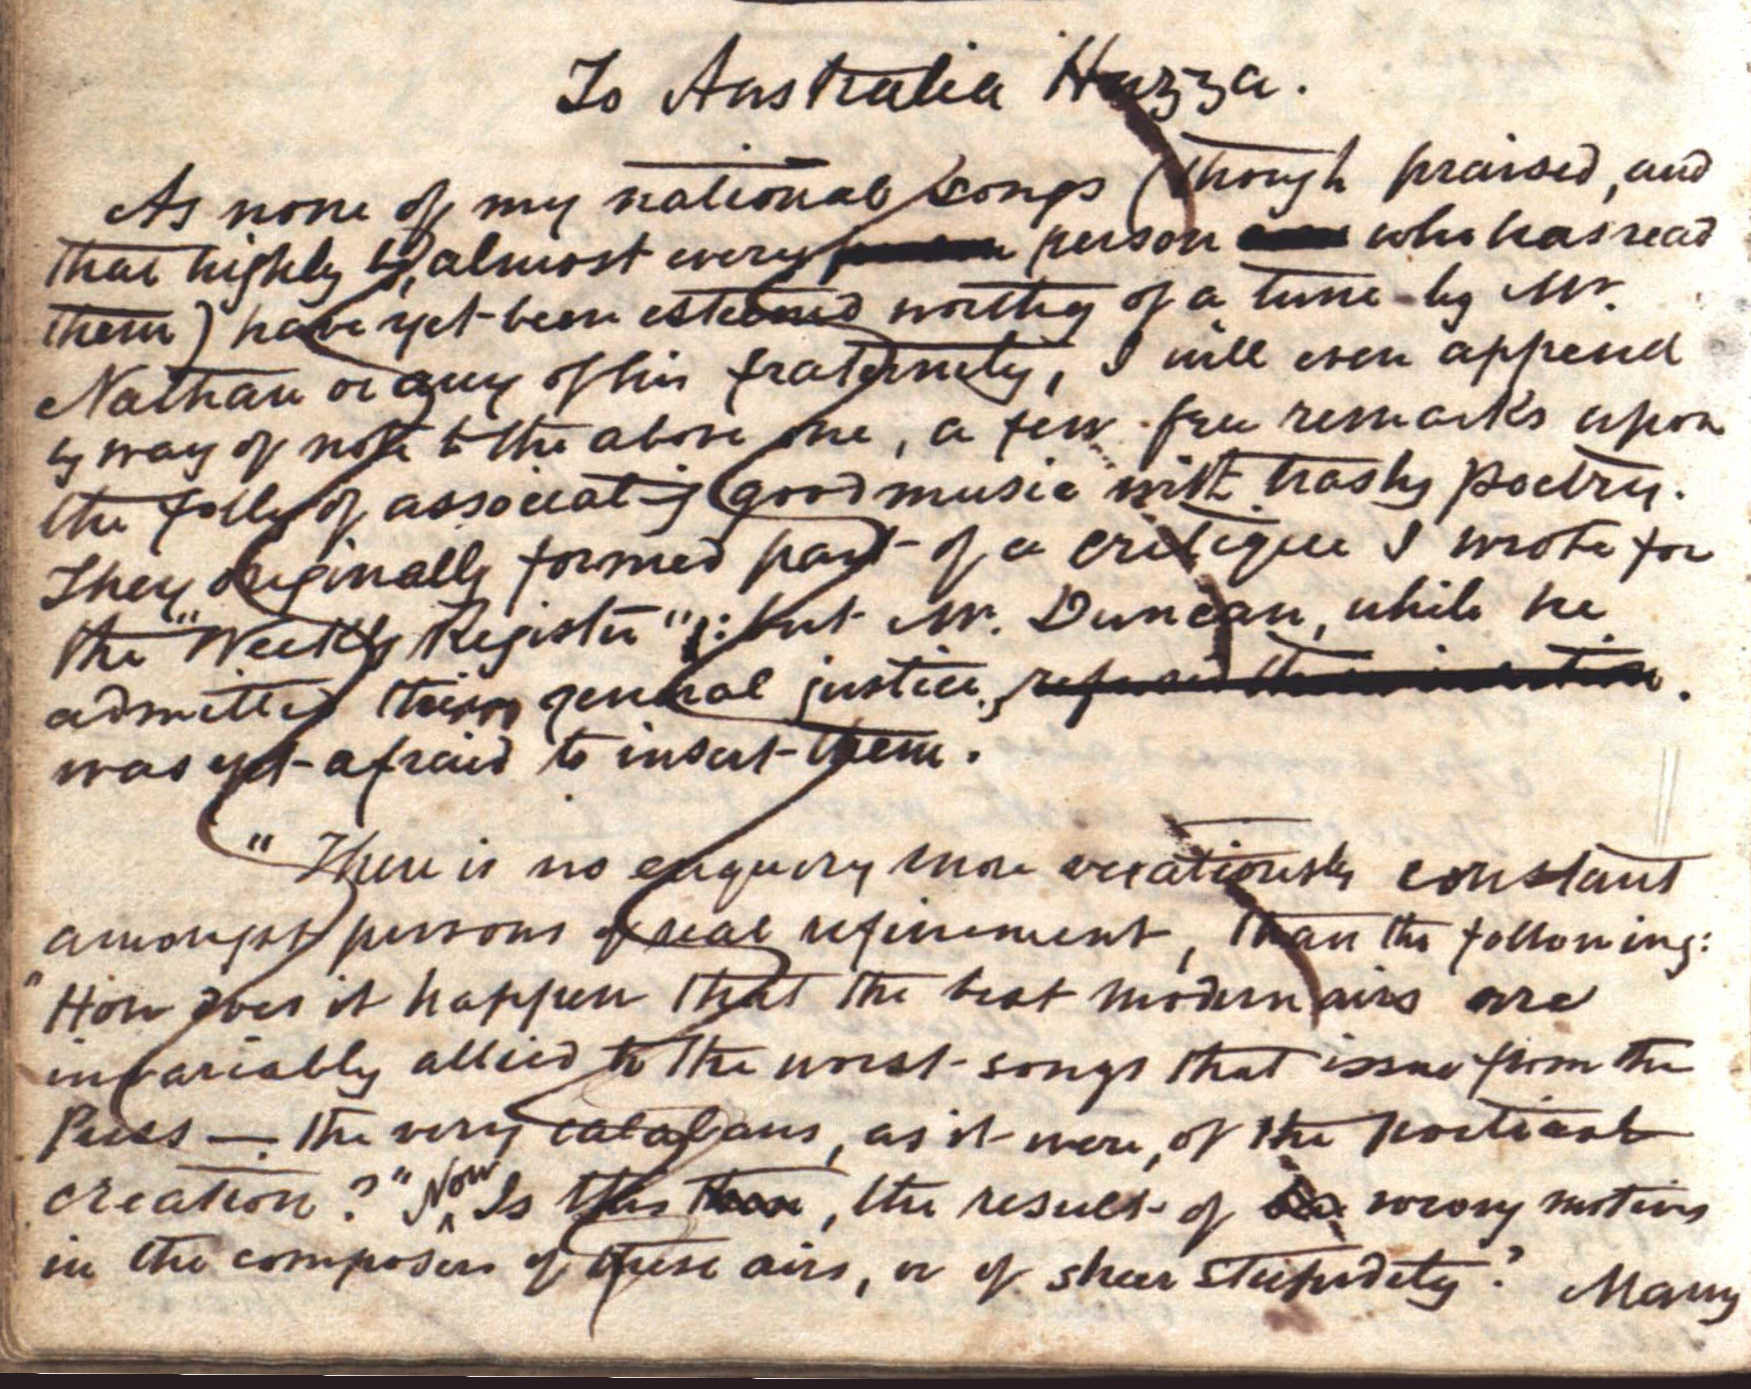 To Australia Huzza.
As none of my national songs (though praised, and
that highly by, almost every person who has read
them) have yet been esteemed worthy of a tune by Mr.
Nathan or any of his fraternity, I will even append
by way of note to the above one, a few free remarks upon
the folly of associating good music with trashy poetry.
They originally formed part of a critique I wrote for
the "Weekly Register": but Mr. Duncan, while he
admitted their general justice, refused their insertion.
was yet afraid to insert them.
"There is no enquiry more vexatiously constant
amongst persons of real refinement, than the following:
"How does it happen that the best modern airs are
invariably allied to the worst songs that issue from the
Press — the very calabans, as it were, of the poetical
creation?" Now Is this then, the result of wrong motives
in the composers of these airs, or of sheer stupidity? Many